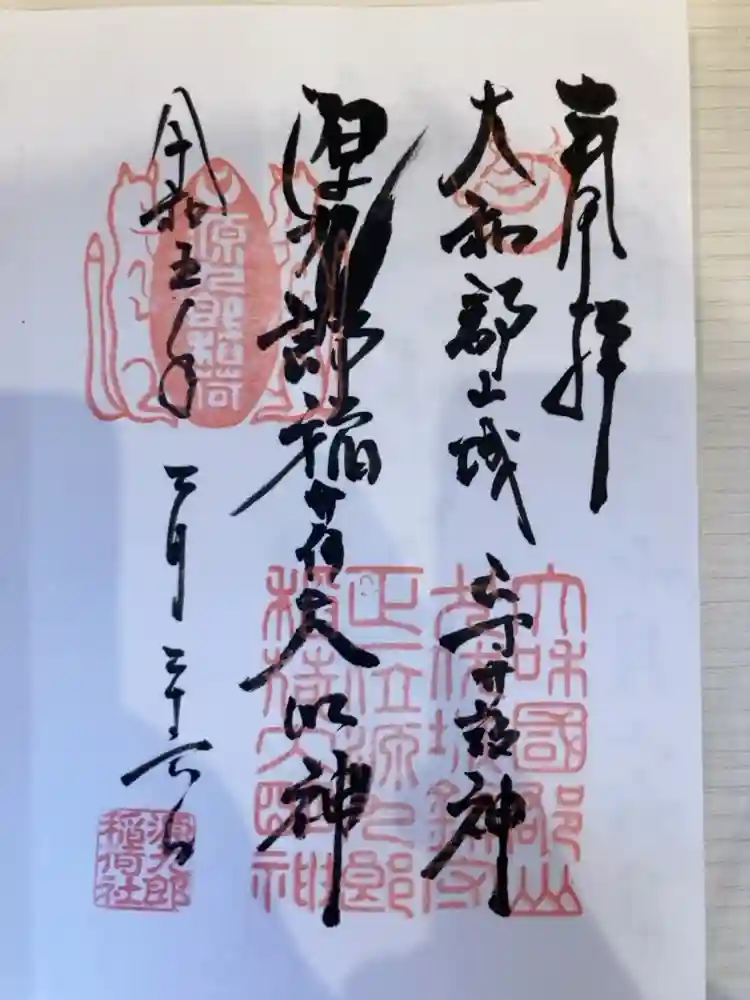 奉拝
大和郡山城 守護神
源九郎稲荷大明神
令和五年 二月二十六日
大和國郡山
正一位源九郎
稲荷大明神
源九郎稲荷
源九郎
稲荷社